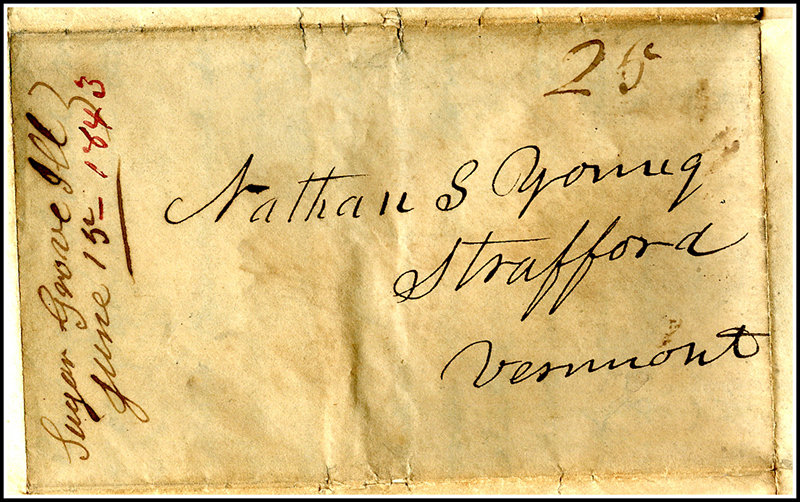 Sugar Grove Ill
June 15 - 1843
25
Nathan S Young
Strafford
Vermont